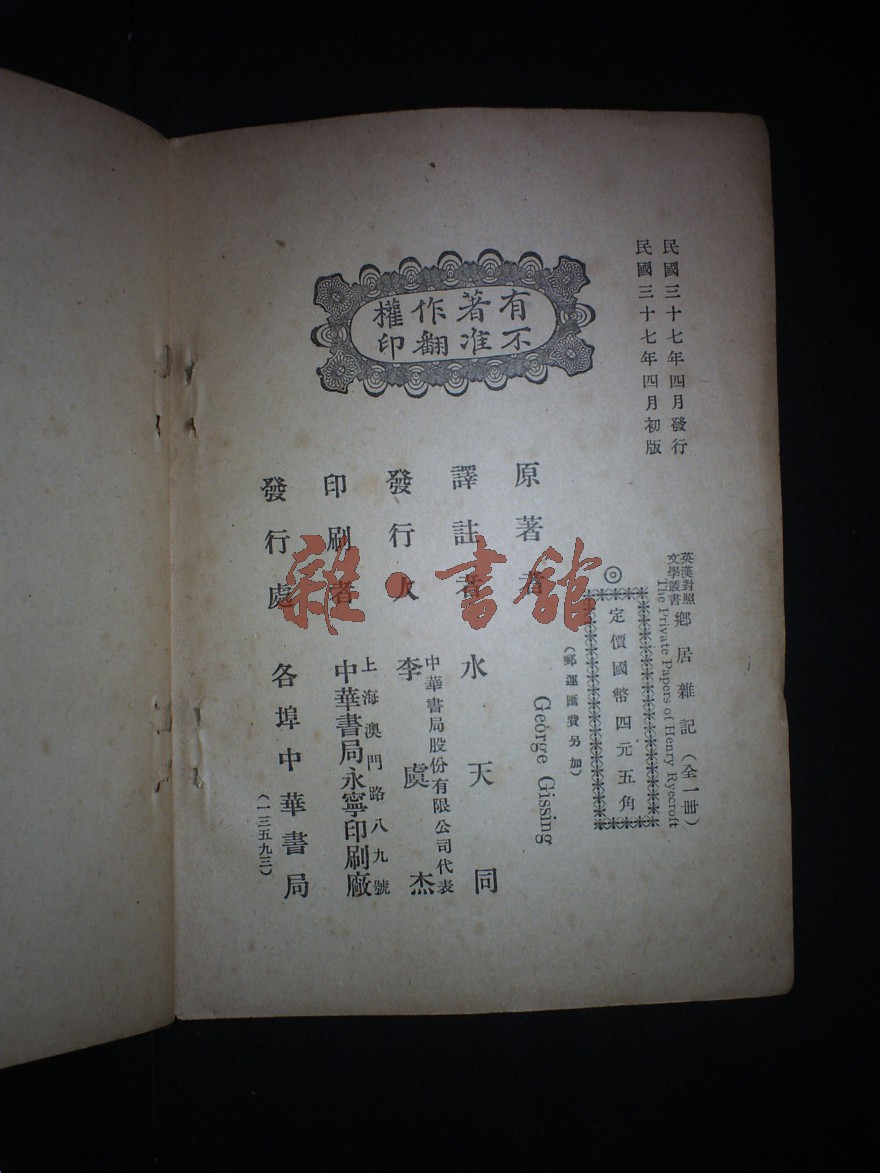 民國三十七年四月發行
民國三十七年四月初版
英漢對照
文學叢書
鄉居雜記(全一冊)
The Private Papers of Henry Ryecroft
◎定價國幣四元五角
(郵運匯費另加)
有著作權
不准翻印
原著者 George Gissing
譯註者 水天同
發行人 李虞杰
中華書局股份有限公司代表
印刷者 中華書局永寧印刷廠
上海澳門路八九號
發行處 各埠中華書局
(一三五九三)
雜·書館